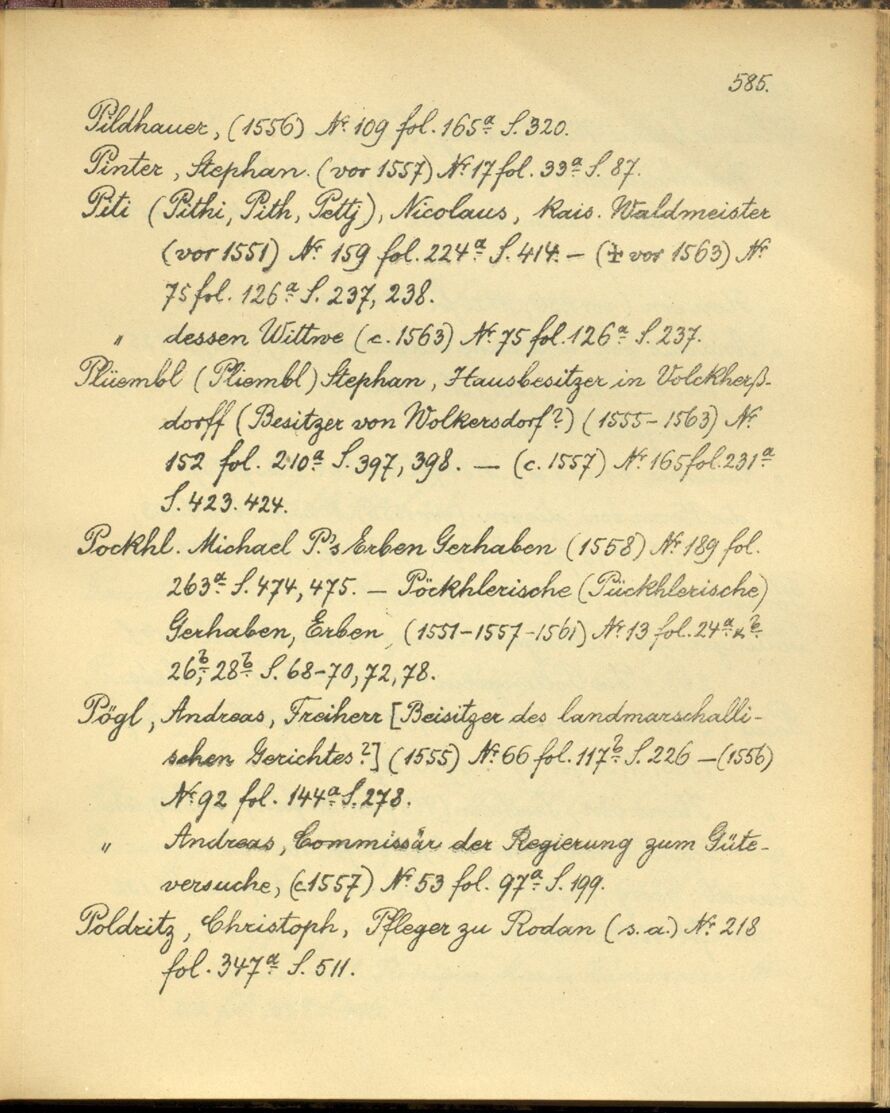 585.
Pildhauer, (1556) Nr. 109 fol. 165a S. 320.
Pinter, Stephan. (vor 1557) Nr 17 fol. 33a S. 87.
Piti (Pithi, Pith, Pettj), Nicolaus, kais. Waldmeister
(vor 1551) Nr. 159 fol. 224a S. 414. – (✝ vor 1563) Nr
75 fol. 126a S. 237, 238.
" dessen Wittwe (c. 1563) Nr. 75 fol. 126a S. 237.
Plüembl (Pliembl) Stephan, Hausbesitzer in Volckherß-
dorff (Besitzer von Wolkersdorf?) (1555–1563) Nr.
152 fol. 210a S. 397, 398. — (c. 1557) Nr. 165 fol. 231a
S. 423. 424.
Pockhl. Michael P.'s Erben Gerhaben (1558) Nr 189 fol.
263a S. 474, 475. — Pöckhlerische (Pückhlerische)
Gerhaben, Erben, (1551–1557–1561) Nr. 13 fol. 24a & b
26b, 28b S. 68–70, 72, 78.
Pögl, Andreas, Freiherr [Beisitzer des landmarschalli-
schen Gerichtes?] (1555) Nr. 66 fol. 117b S. 226 — (1556)
Nr 92 fol. 144a S. 278.
" Andreas, Commissär der Regierung zum Güte-
versuche, (c. 1557) Nr. 53 fol. 97a S. 199.
Poldritz, Christoph, Pfleger zu Rodan (s. a.) Nr. 218
fol. 347a S. 511.